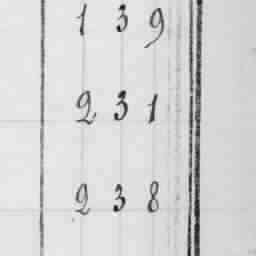 139
231
238